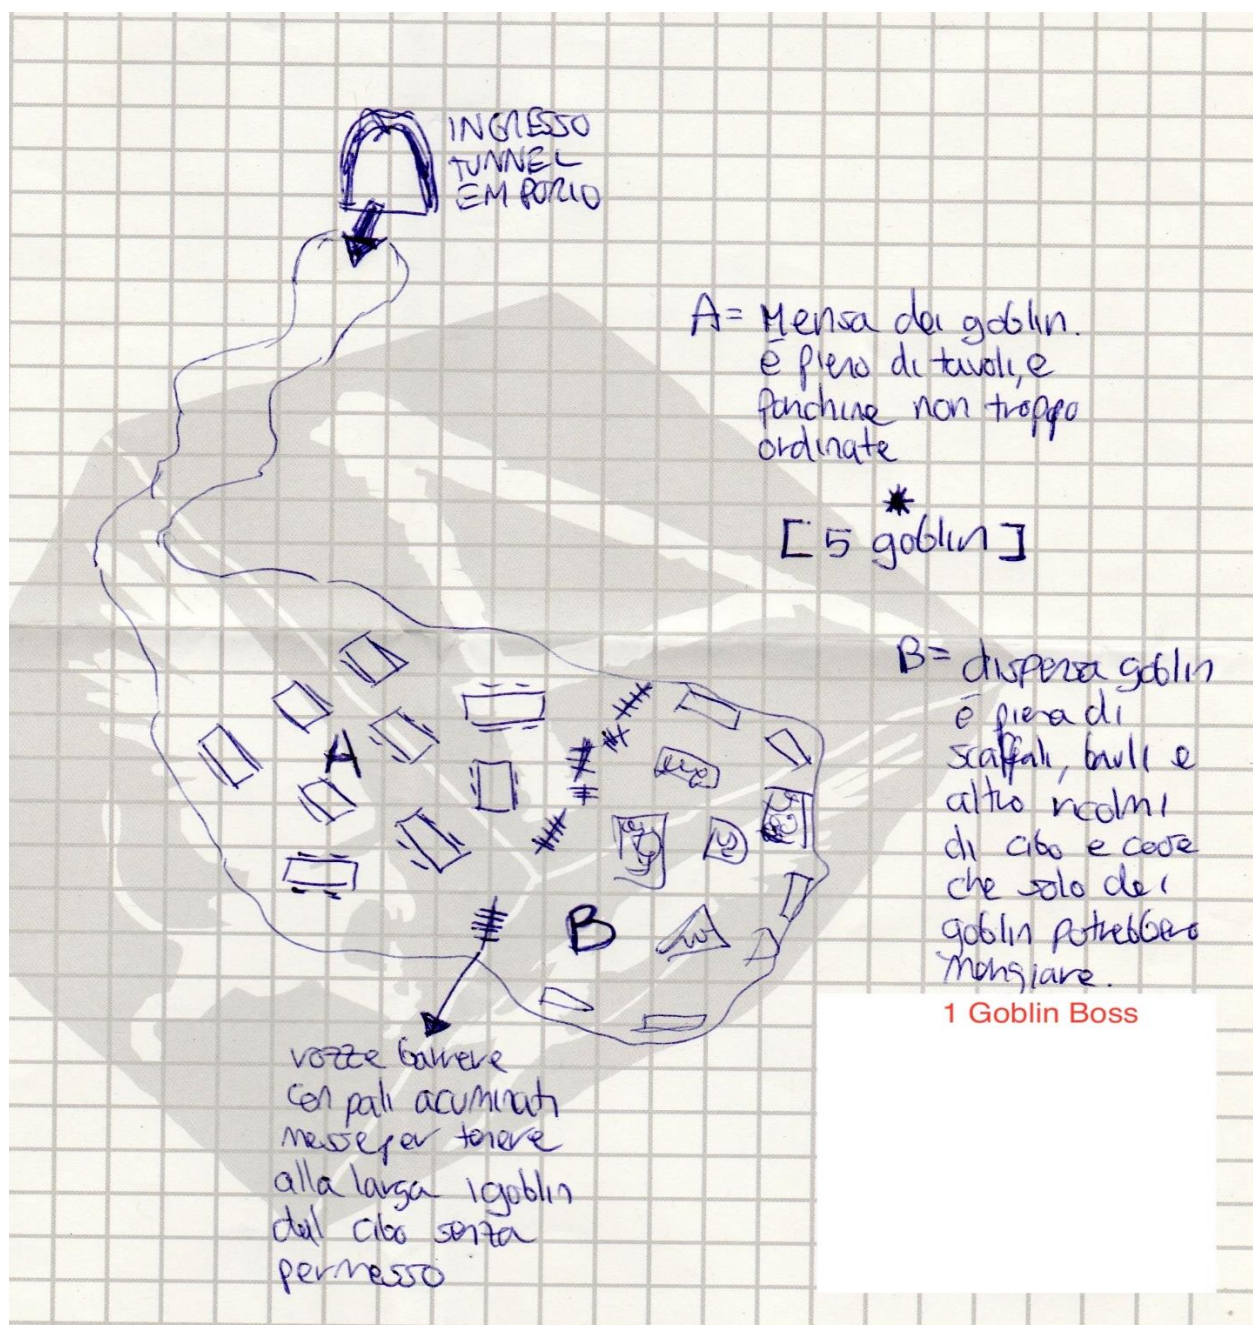 INGRESSO
TUNNEL
EMPORIO
A= Mensa dei goblin.
è pieno di tavoli, e
panchine non troppo
ordinate
*
[5 goblin]
A
B= dispensa goblin
è piena di
scaffali, bauli e
altro ricolmi
di cibo e cose
che solo dei
goblin potrebbero
mangiare.
1 Goblin Boss
B
rozze barriere
con pali acuminati
messe per tenere
alla larga i goblin
dal cibo senza
permesso